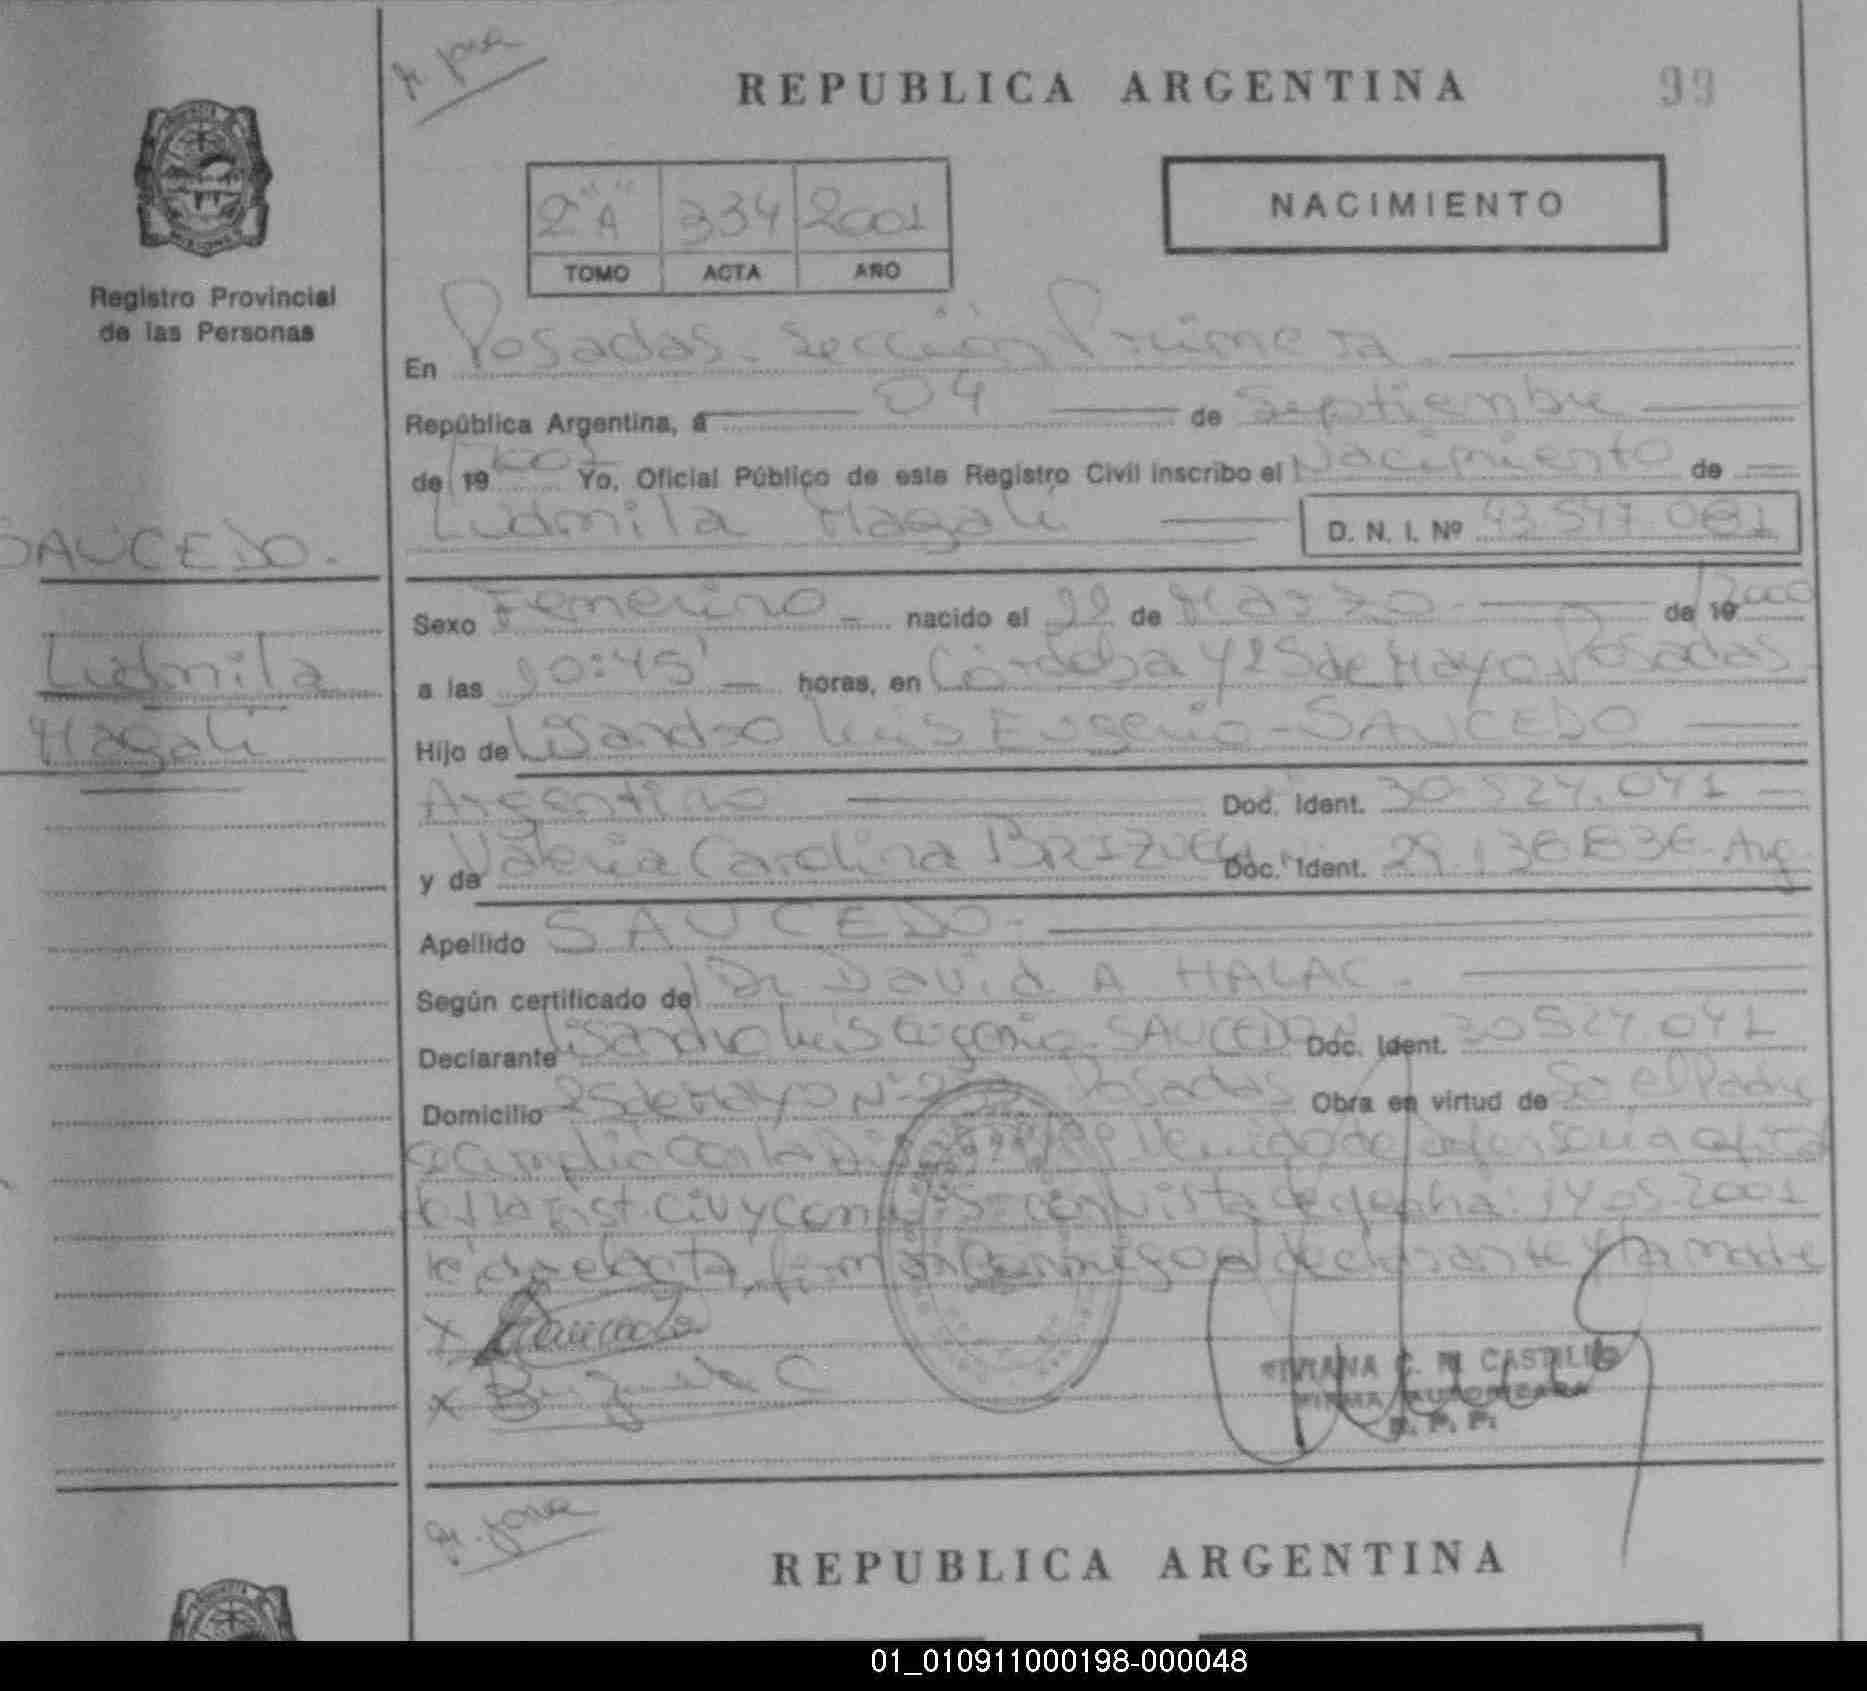 REPUBLICA ARGENTINA
99
2" "A
334
2001
TOMO
ACTA
AÑO
NACIMIENTO
Registro Provincial
de las Personas
En Posadas. Sección Primera.
República Argentina, a 04 de Septiembre
de 19 Yo, Oficial Público de este Registro Civil inscribo el Nacimiento de
Ludmila Magali
D. N. I. Nº 43.547.
SAUCEDO.
Ludmila
Magali
Sexo Femenino nacido el de Marzo de 19 2000
a las horas, en Córdoba y 25 de Mayo. Posadas
Hijo de Lisandro Luis Eugenio - SAUCEDO
Argentino Doc. Ident. 30.527.041
y de Valeria Carolina BRIZUELA Doc. Ident. 29. Arg.
Apellido SAUCEDO.
Según certificado de Dr David A HALAC.
Declarante Lisandro Luis Eugenio SAUCEDO Doc. Ident. 30527.041
Domicilio 25 de Mayo Nº Posadas Obra en virtud de Ser el Padre
de
Inst. Civ y Com con vista de fecha: 14.05.2001
el acta, firman conmigo el declarante y la madre
X Saucedo
X Brizuela C
VIVIANA C. M CASTILLO
FIRMA AUTORIZADA
R. P. P.
REPUBLICA ARGENTINA
01_010911000198-000048